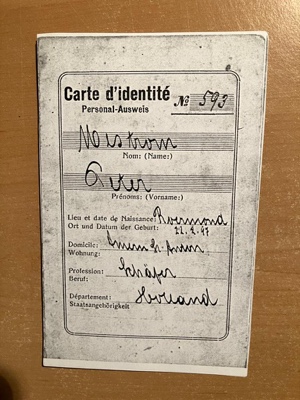 Carte d'identité № 593
Personal-Ausweis
Nom: (Name:)
Peter
Prénoms: (Vorname:)
Lieu et date de Naissance: Roermond
Ort und Datum der Geburt: 22.2.97
Domicile:
Wohnung:
Profession: Schäfer
Beruf:
Département: Holland
Staatsangehörigkeit